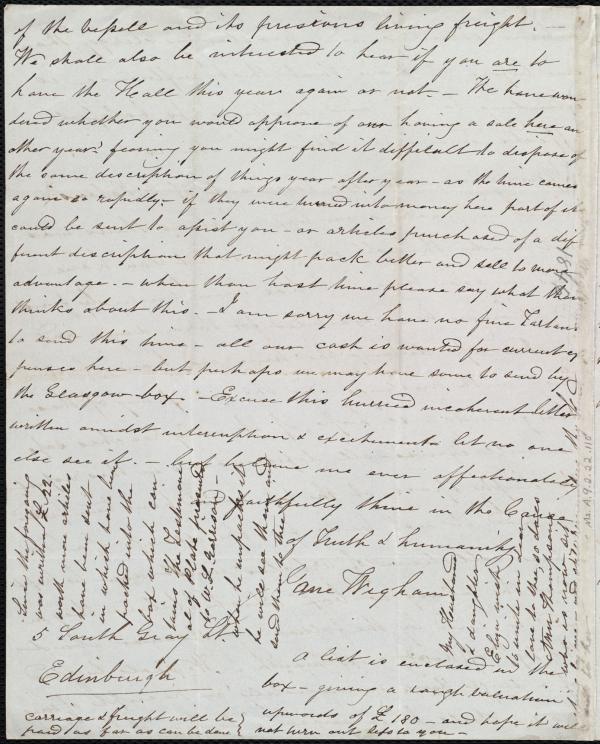 of the vessell and its precious living freight. —
We shall also be interested to hear if you are to
have the Hall this year again or not. — We have won
dered whether you would approve of our having a sale here an
other year? fearing you might find it difficult to dispose of
the same description of things year after year — as the time comes
again so rapidly — if they were turned into money here part of it
could be sent to assist you — or articles purchased of a dif
ferent description that might pack better and sell to more
advantage. — when thou hast time please say what thou
thinks about this. — I am sorry we have no fine Tartans
to send this time — all our cash is wanted for current ex
penses here — but perhaps we may have some to send by
the Glasgow box. — Excuse this hurried incoherent letter
written amidst interruption & excitement let no one
else see it. — but believe me ever affectionately
& faithfully thine in the Cause
of Truth & humanity
Jane Wigham
5 South Gray St.
Edinburgh
a list is enclosed in the
box — giving a rough valuation
upwards of £180 — and hope it will
not turn out less to you —
carriage & freight will be
paid as far as can be done
Since the foregoing
was written £22
worth more articles
have been sent
in which have been
packed into the
box which con
tains the Testimoni
al of Plate presented
to W. L. Garrison —
when he unpacks it
he will see them and
send them to thee
My Husband
& daughter
Eliza wish
to unite in dear
love to thee, so does